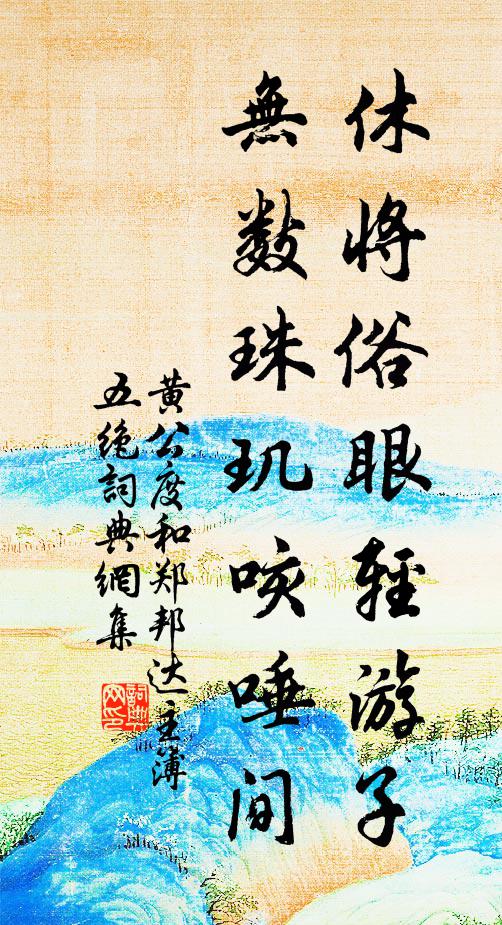 休将俗眼輕游子
無数珠玑咳唾间
黄公度和郑邦达主簿
五绝詞典網集
詞典网印